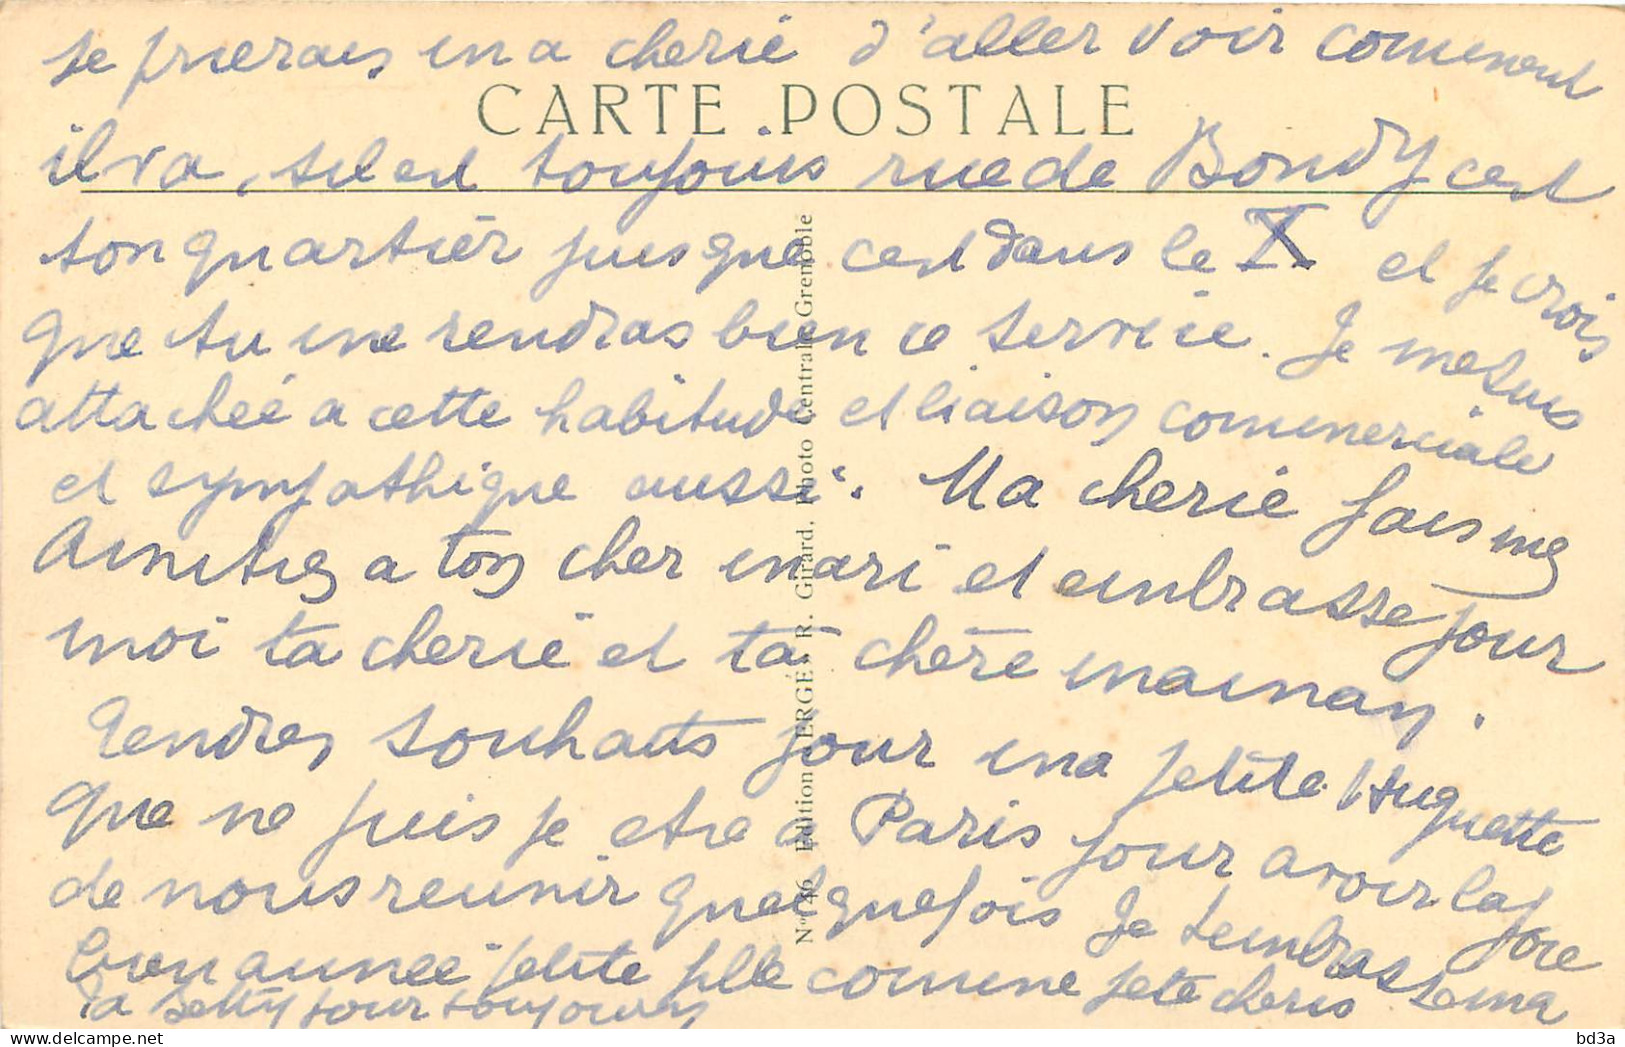 je prierais ma cherie d'aller voir comment
CARTE POSTALE
il va, s'il est toujours rue de Bondy c'est
ton quartier puisque c'est dans le X et je crois
que tu me rendras bien ce service. Je me suis
attachée a cette habitude et liaison commerciale
et sympathique aussi. Ma cherie fais mes
Amitiés a ton cher mari et embrasse pour
moi ta cherie et ta chère maman.
Tendres souhaits pour ma petite Huguette
que ne puis je etre a Paris pour avoir la joie
de nous reunir quelquefois Je t'embrasse ma
bien aimée petite fille comme je te cheris
Ta Betty pour toujours
N° 746 Edition VERGÉ, R. Girard, Photo Centrale Grenoble
bd3a